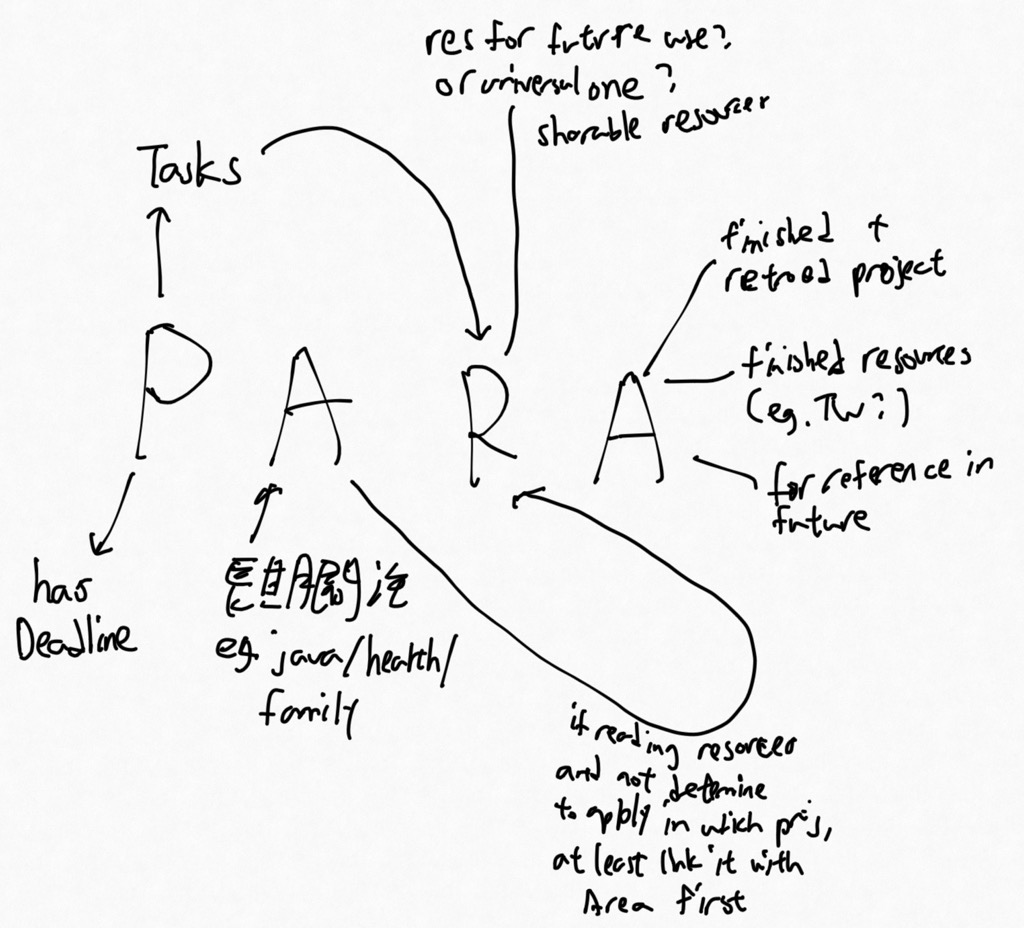 res for future use?
or universal one ?
sharable resources
Tasks
finished +
retroed project
P A R A
finished resources
(eg. TW?)
for reference in
future
has
Deadline
長期關注
eg. java/health/
family
if reading resources
and not detemine
to apply in which proj,
at least link it with
Area first